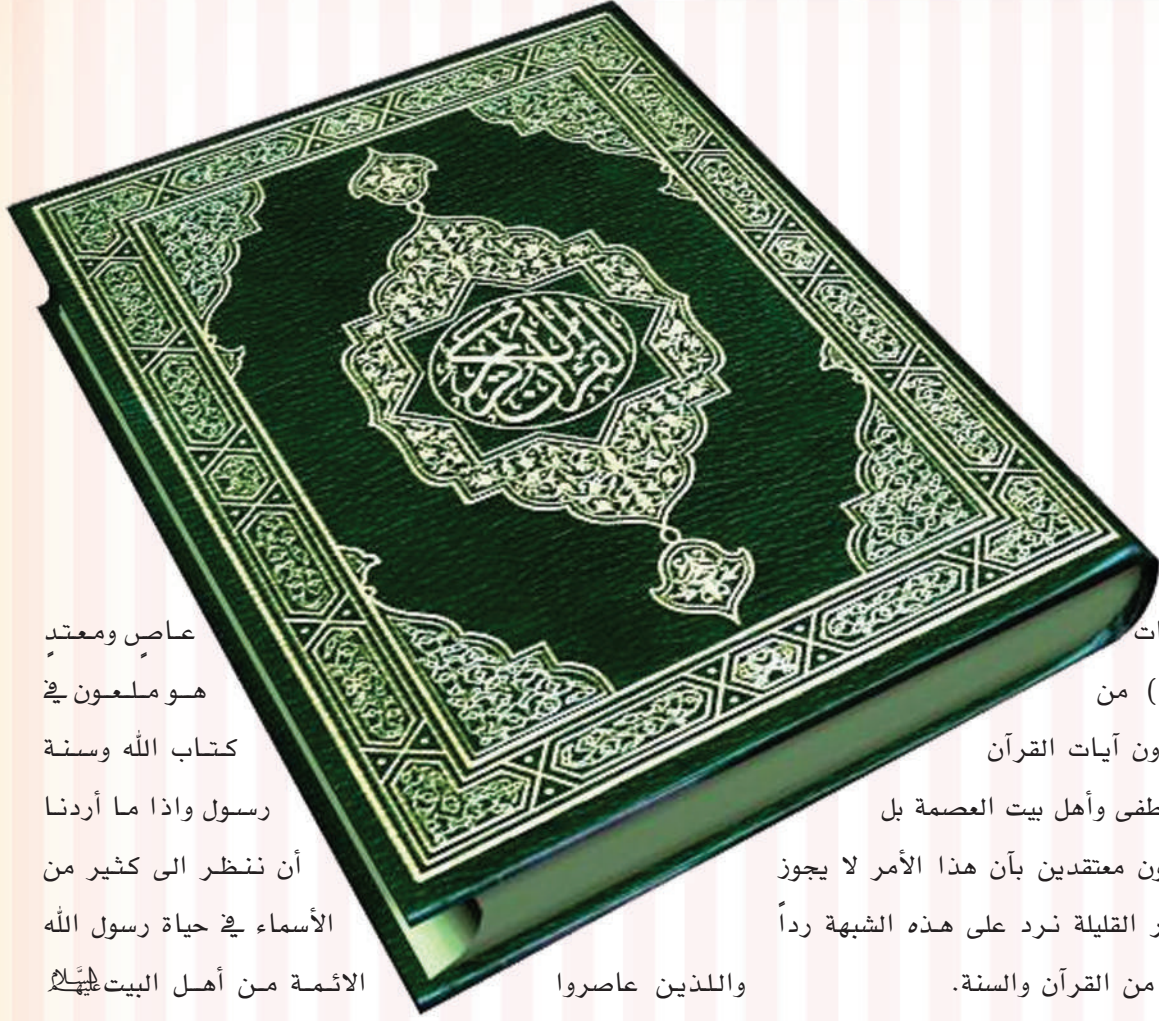 القرآن الكريم
ات
) من
ون آيات القرآن
طفى وأهل بيت العصمة بل
ون معتقدين بآن هذا الأمر لا يجوز
ر القليلة نرد على هذه الشبهة رداً
من القرآن والسنة.
عاصٍ ومعتدٍ
هو ملعون في
كتاب الله وسنة
رسول واذا ما أردنا
أن ننظر الى كثير من
الأسماء في حياة رسول الله
واللذين عاصروا الائمة من أهل البيت عليهم السلام